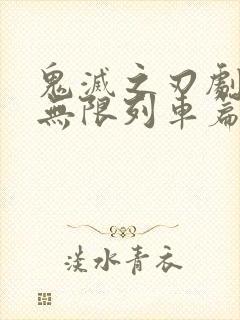 鬼滅之刃劇
無限列車篇
淡水青衣